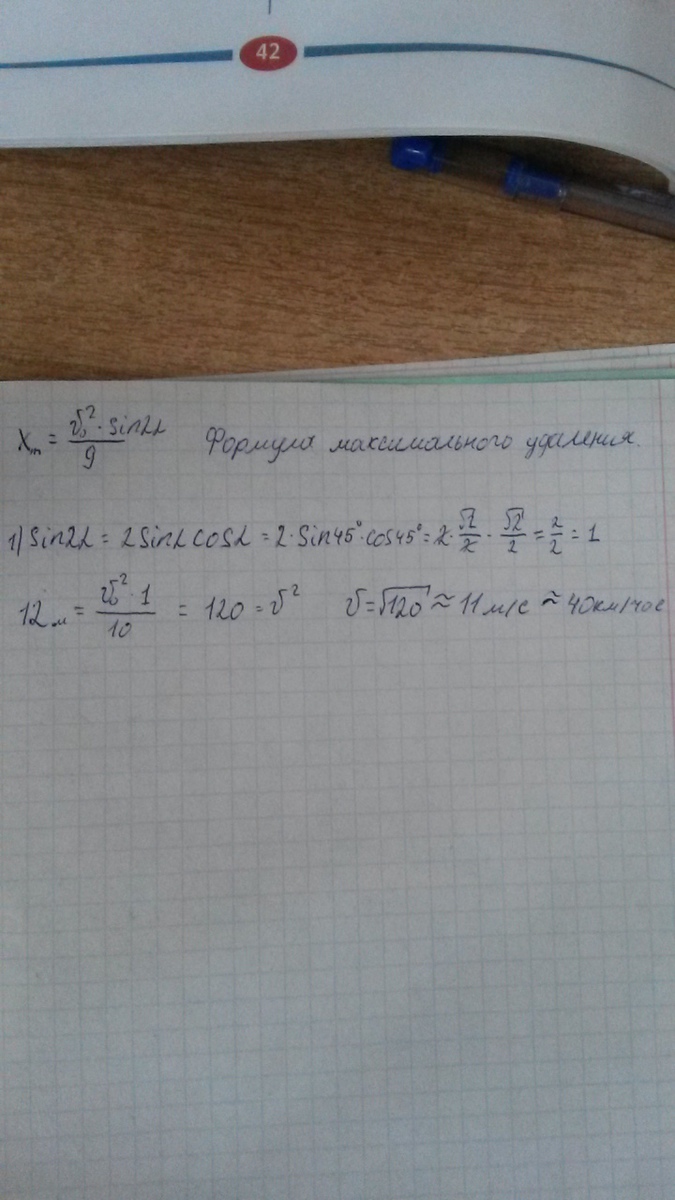 42
Xm = v₀² · sin2α / g Формула максимального удаления.
1) sin2α = 2sinα cosα = 2·sin45°·cos45° = 2 · √2/2 · √2/2 = 2/2 = 1
12м = v₀² · 1 / 10 = 120 = v² v = √120 ≈ 11 м/с ≈ 40км/час